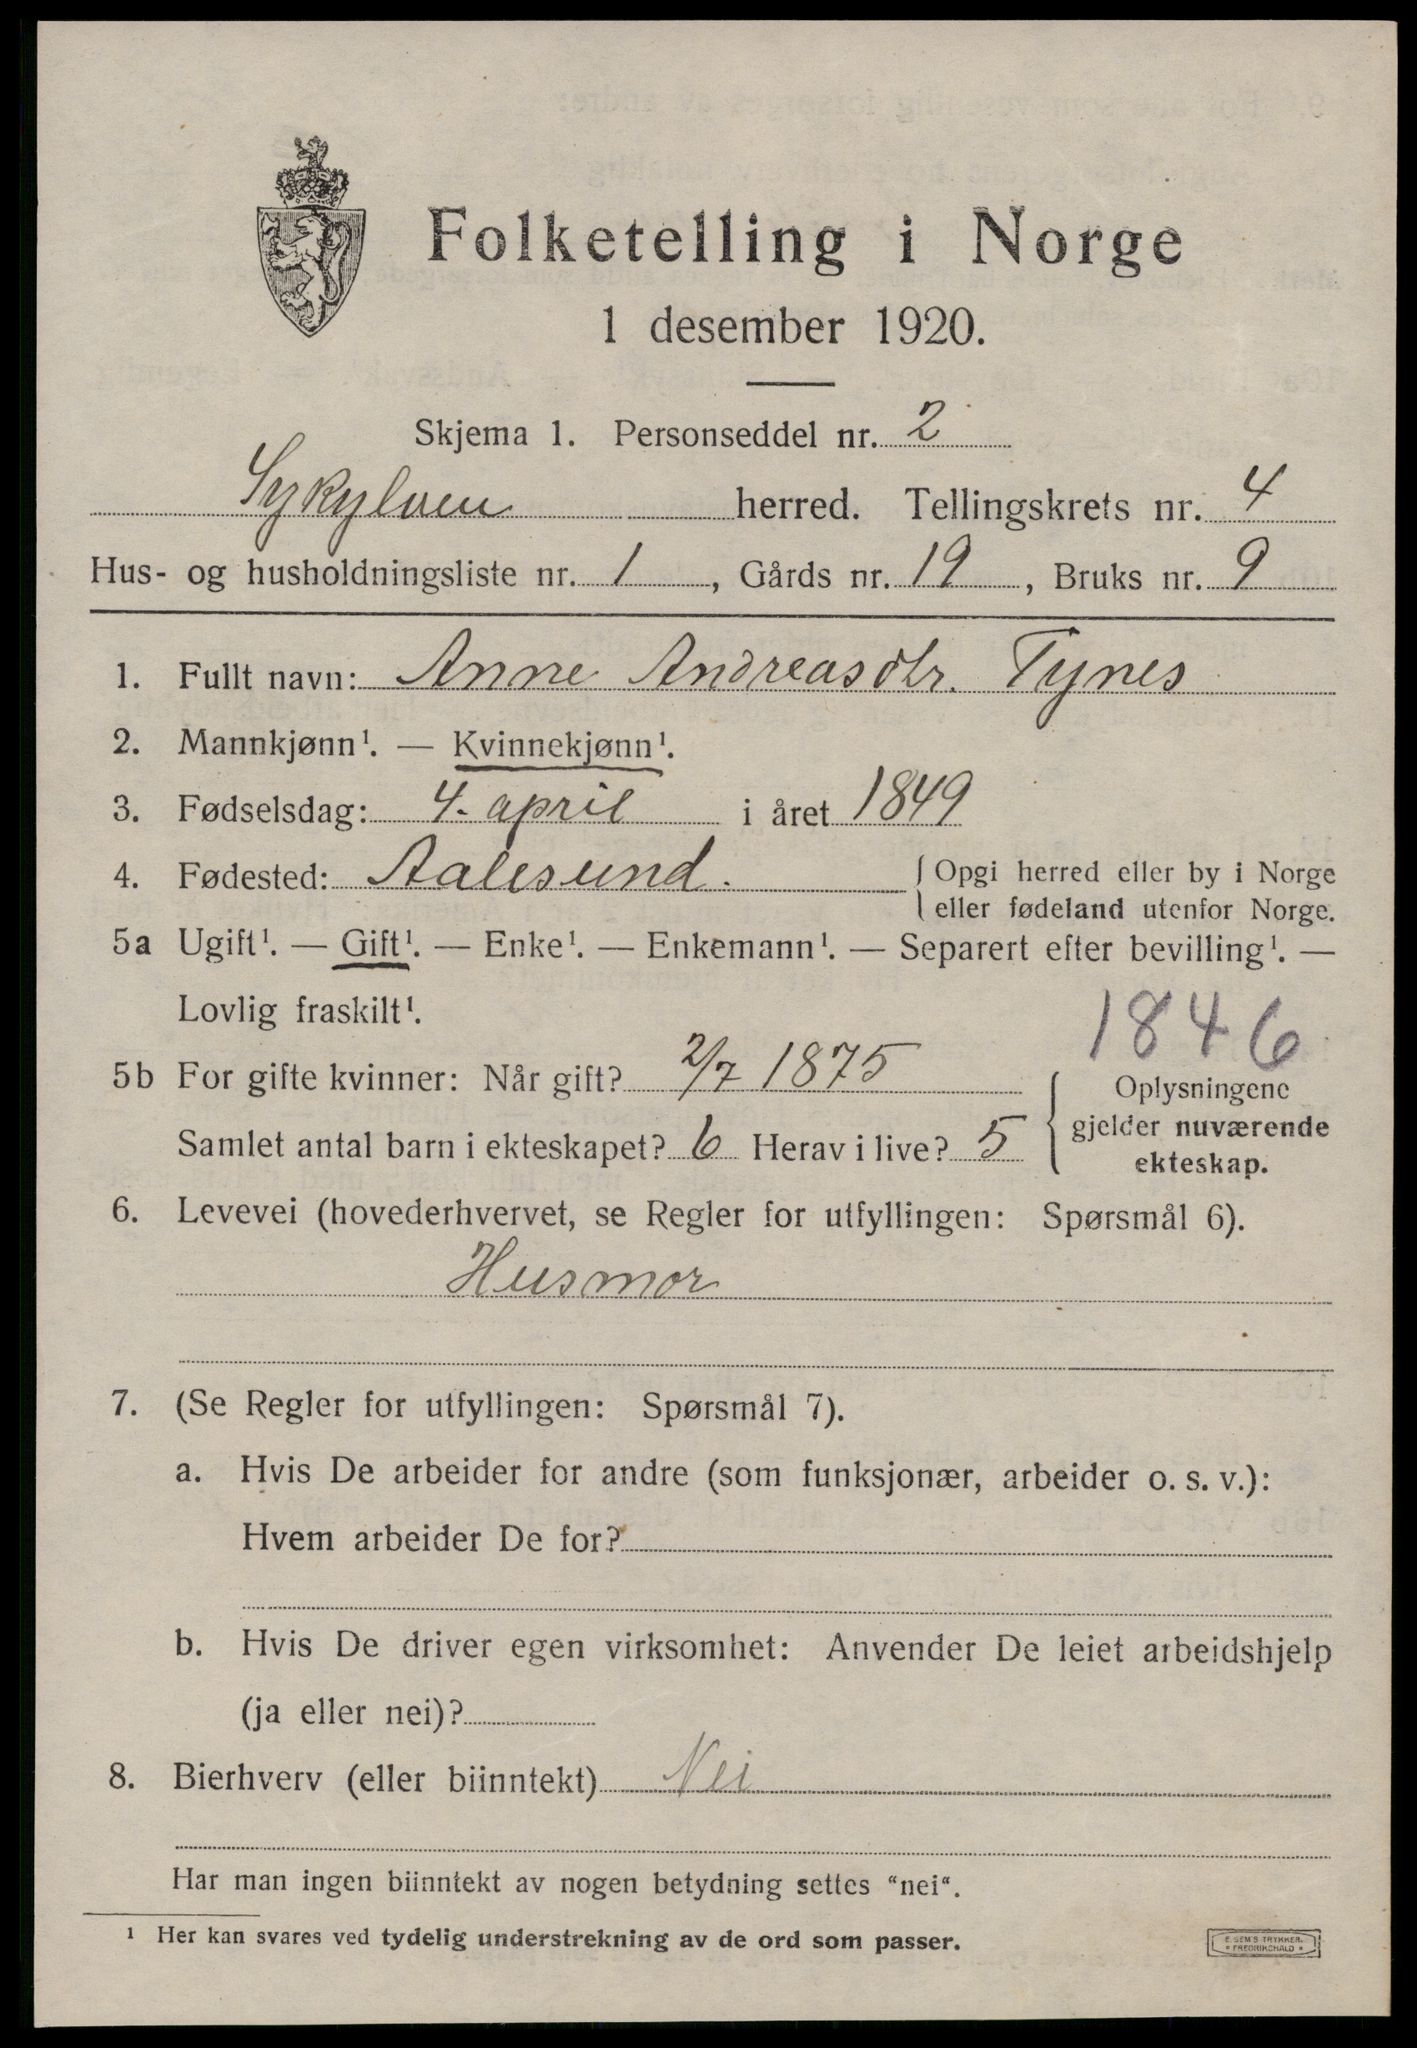 Folketelling i Norge
1 desember 1920.
Skjema 1. Personseddel nr. 2
Sykylven herred. Tellingskrets nr. 4
Hus- og husholdningsliste nr. 1, Gårds nr. 19, Bruks nr. 9
1. Fullt navn: Anne Andreasdtr. Tynes
2. Mannkjønn¹. — Kvinnekjønn¹.
3. Fødselsdag: 4. april i året 1849
4. Fødested: Aalesund. { Opgi herred eller by i Norge
eller fødeland utenfor Norge.
5a Ugift¹. — Gift¹. — Enke¹. — Enkemann¹. — Separert efter bevilling¹. —
Lovlig fraskilt¹.
1846
5b For gifte kvinner: Når gift? 2/7 1875
Samlet antal barn i ekteskapet? 6 Herav i live? 5
Oplysningene
gjelder nuværende
ekteskap.
6. Levevei (hovederhvervet, se Regler for utfyllingen: Spørsmål 6).
Husmor
7. (Se Regler for utfyllingen: Spørsmål 7).
a. Hvis De arbeider for andre (som funksjonær, arbeider o. s. v.):
Hvem arbeider De for?
b. Hvis De driver egen virksomhet: Anvender De leiet arbeidshjelp
(ja eller nei)?
8. Bierhverv (eller biinntekt) Nei
Har man ingen biinntekt av nogen betydning settes "nei".
¹ Her kan svares ved tydelig understrekning av de ord som passer.
E. SEM'S TRYKKER.
* FREDRIKSHALD *